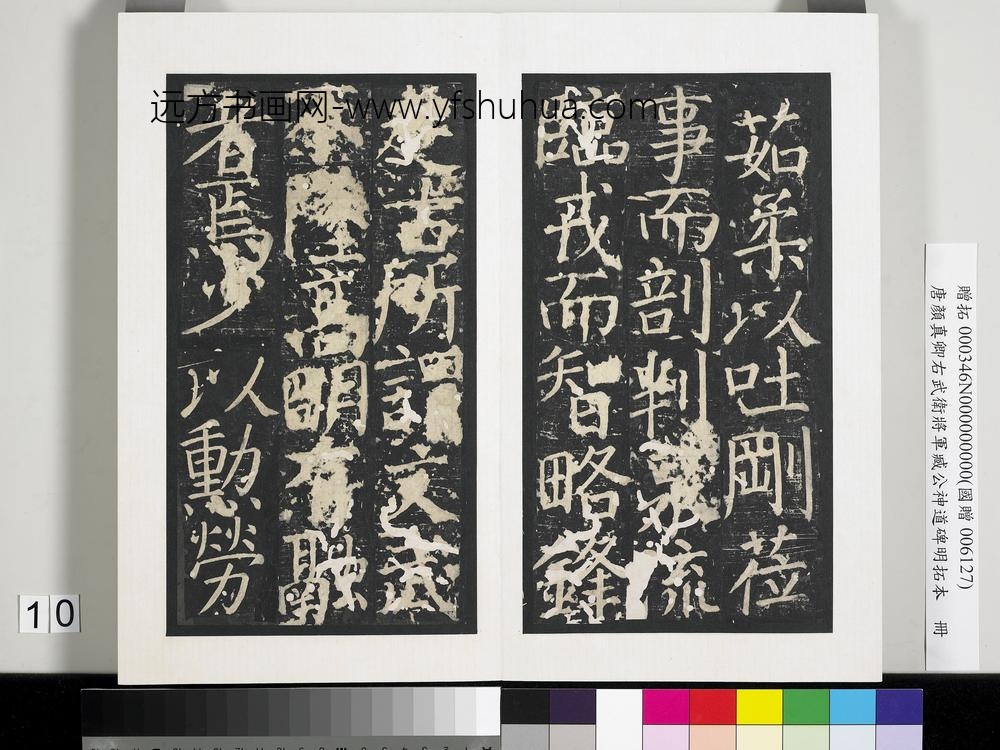 远方书画网-www.yfshuhua.com
茹柔以吐剛蒞
事而剖判流
臨戎而智略鋒
古所謂文武
高明有
者焉少以勳勞
10
贈拓 000346N000000000(國贈 006127)
唐顏真卿右武衛將軍臧公神道碑明拓本 冊